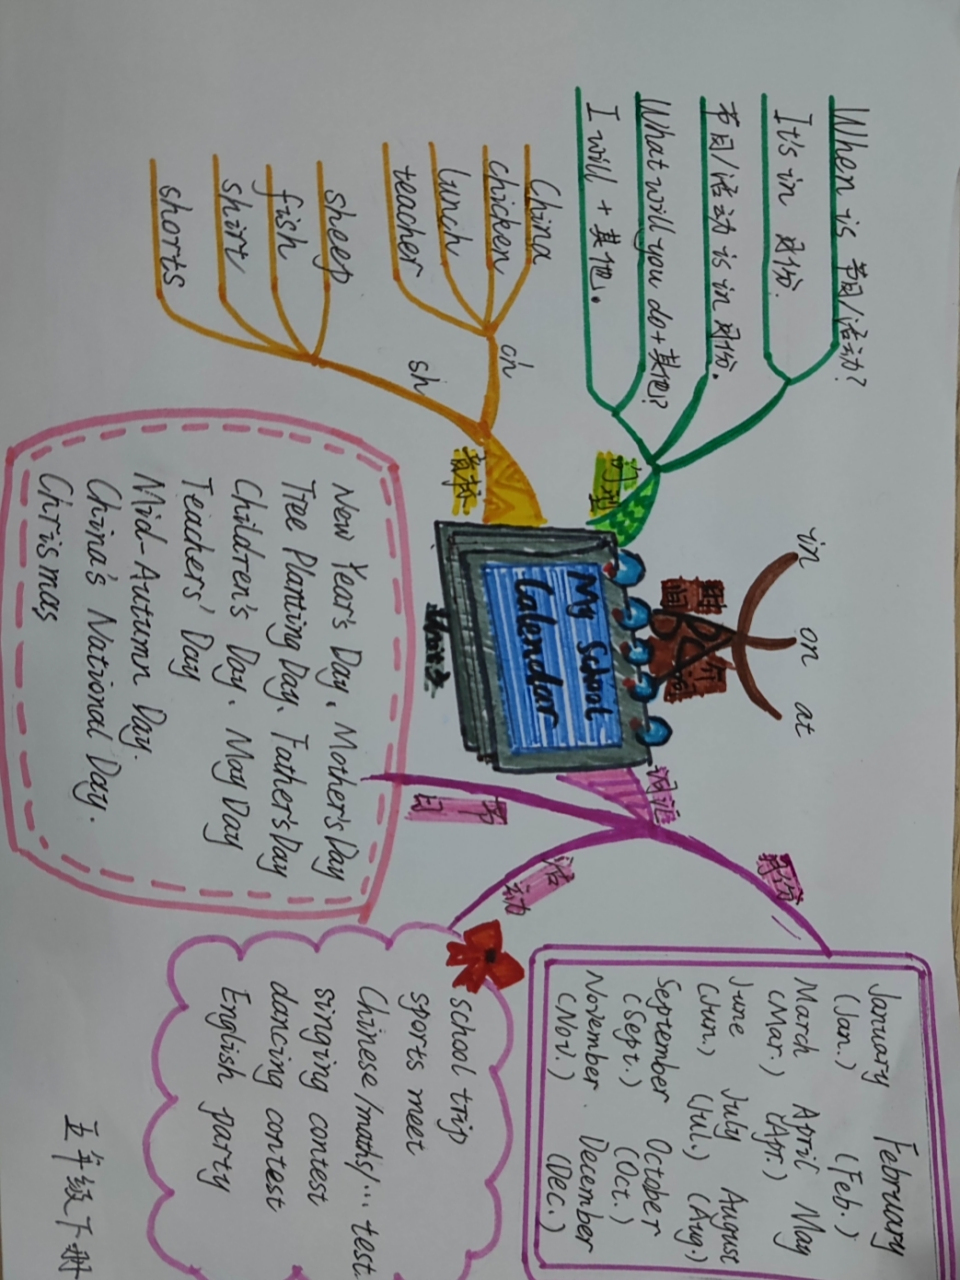 My School
Calendar
Unit 3
时间
介词
in
on
at
句型
When is 节日/活动?
It's in 月份.
节日/活动 is in 月份.
What will you do+其他?
I will + 其他.
音标
ch
China
chicken
lunch
teacher
sh
sheep
fish
shirt
shorts
词汇
月份
January February
(Jan.) (Feb.)
March April May
(Mar.) (Apr.)
June July August
(Jun.) (Jul.) (Aug.)
September October
(Sept.) (Oct.)
November. December
(Nov.) (Dec.)
活动
school trip
sports meet
Chinese/maths/… test.
singing contest
dancing contest
English party
节日
New Year's Day, Mother's Day
Tree Planting Day, Father's Day
Children's Day, May Day
Teachers' Day
Mid-Autumn Day.
China's National Day.
Chrismas
五年级下册